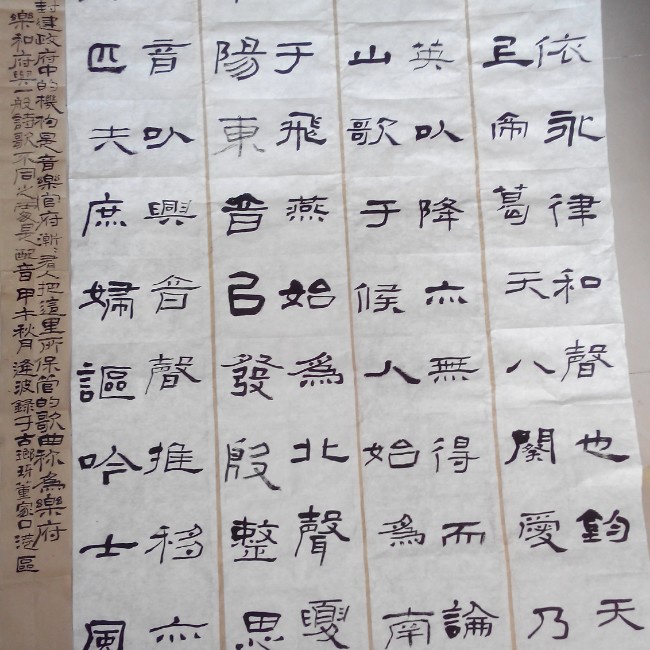 依永律和聲也鈞天
帝葛天八闋愛乃
英以降亦無得而論
山歌于候人始為南
于飛燕始為北聲夏
陽東音已發殷整思
音以興音聲推移亦
匹夫庶婦謳吟士風
封建政府中的機构是音樂官府漸漸有人把這里所保管的歌曲称為樂府
樂和府與一般詩歌不同之處是配音甲午秋月逢波錄于古鄉董家口港區